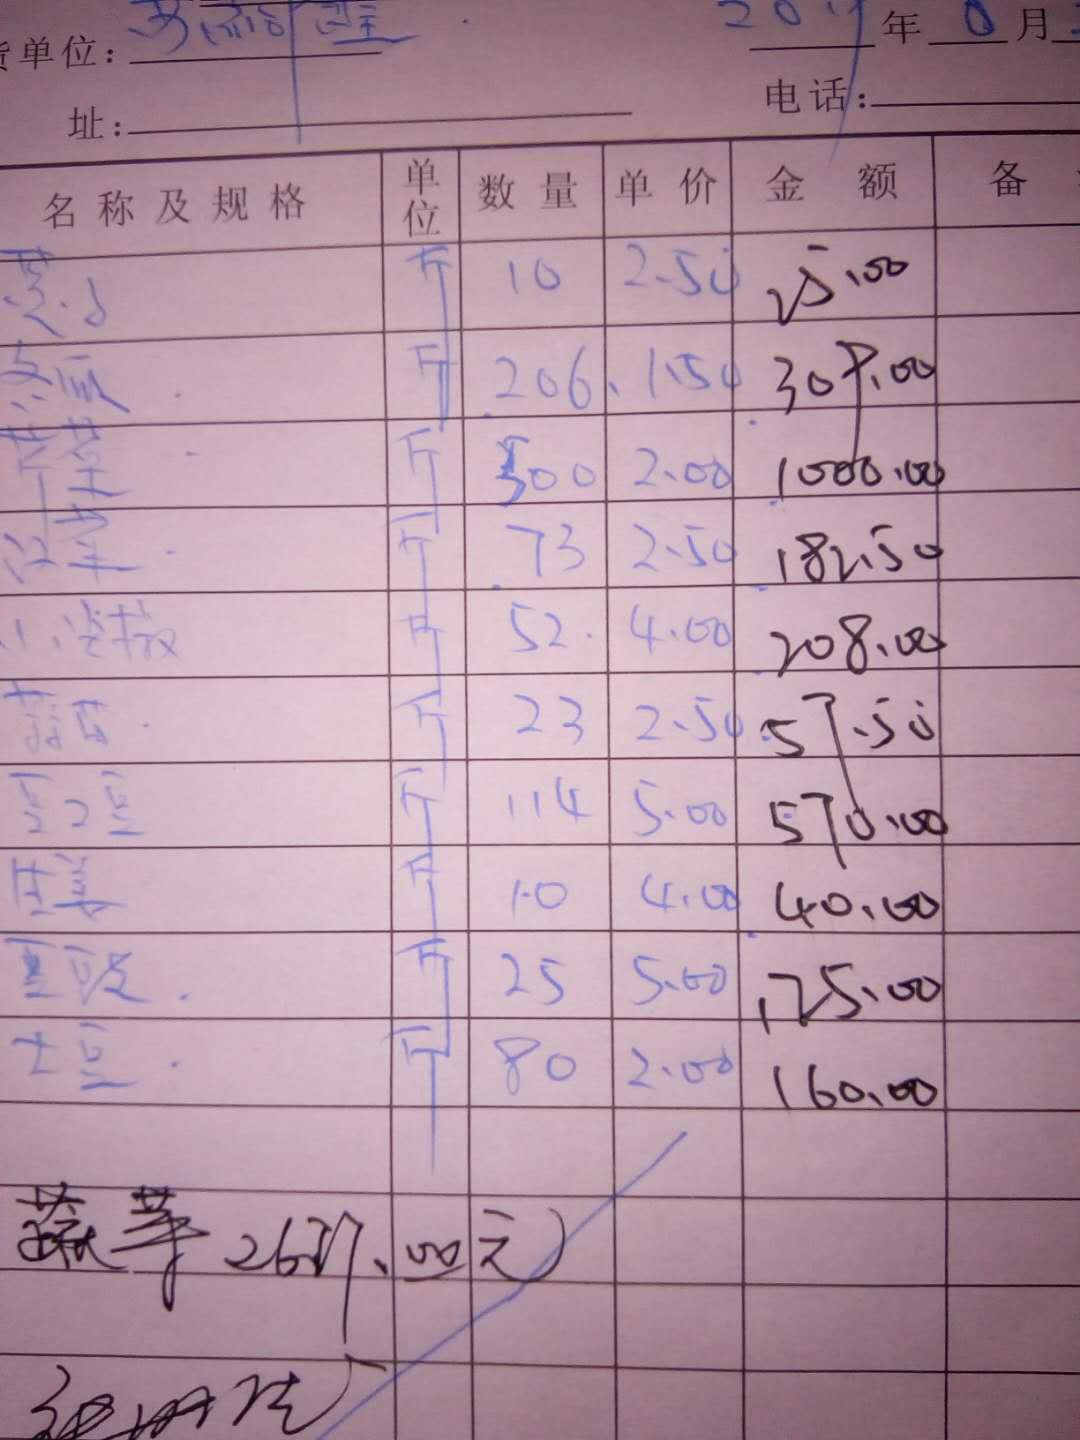 货单位: 2019年 8月
址: 电话:
名称及规格 单位 数量 单价 金额 备
斤 10 2.50 25.00
冬瓜 斤 206 1.50 309.00
芹菜 斤 500 2.00 1000.00
白菜 斤 73 2.50 182.50
小米椒 斤 52 4.00 208.00
蒜苗 斤 23 2.50 57.50
豆 斤 114 5.00 570.00
生姜 斤 10 4.00 40.00
豆豉 斤 25 5.00 125.00
土豆 斤 80 2.00 160.00
蔬菜 2677.00元